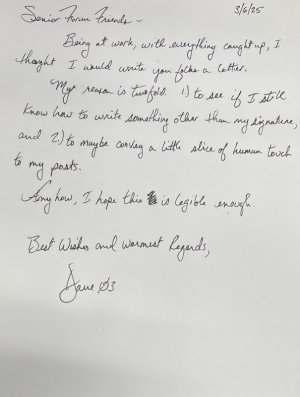 Senior Forum Friends - 3/6/25
Being at work, with everything caught up, I
thought I would write you folks a letter.
My reason is twofold. 1) to see if I still
know how to write something other than my signature,
and 2) to maybe convey a little slice of human touch
to my posts.
Anyhow, I hope this is legible enough.
Best Wishes and Warmest Regards,
Dave Ø3